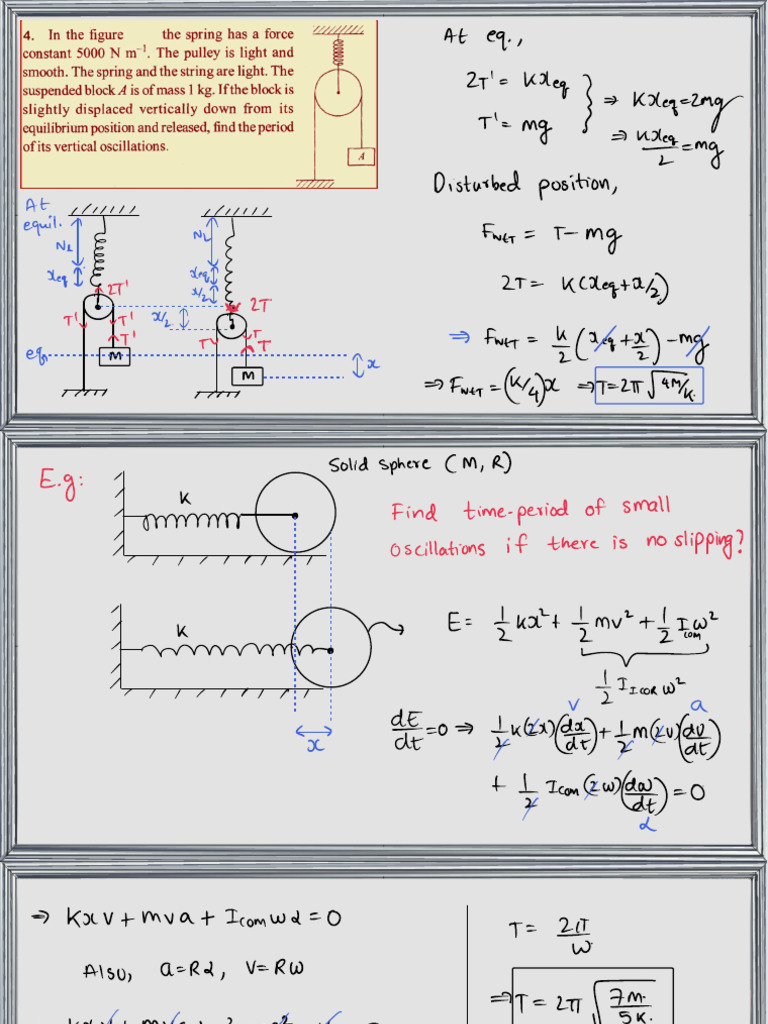 4. In the figure the spring has a force
constant 5000 N m⁻¹. The pulley is light and
smooth. The spring and the string are light. The
suspended block A is of mass 1 kg. If the block is
slightly displaced vertically down from its
equilibrium position and released, find the period
of its vertical oscillations.
A
At eq.,
2T' = Kxeq
T' = mg
⇒ Kxeq = 2mg
⇒ Kxeq/2 = mg
Disturbed position,
FNET = T - mg
2T = K(xeq + x/2)
⇒ FNET = K/2 (xeq + x/2) - mg
⇒ FNET = (K/4)x ⇒ T = 2π √4M/K.
At
equil.
Nl
xeq
2T'
T'
T'
T'
M
eq.
NL
xeq
x/2
x/2
2T
T
T
T
M
x
E.g:
Solid sphere (M, R)
K
Find time-period of small
oscillations if there is no slipping?
K
x
E = 1/2 kx² + 1/2 mv² + 1/2 Icom ω²
1/2 IICOR ω²
dE/dt = 0 ⇒ 1/2 k(2x)(dx/dt) + 1/2 m(2v)(dv/dt)
v
a
+ 1/2 Icom (2ω)(dω/dt) = 0
α
⇒ Kxv + mva + Icom ωα = 0
Also, a = Rα, v = Rω
T = 2π/ω
⇒ T = 2π √7M./5K.